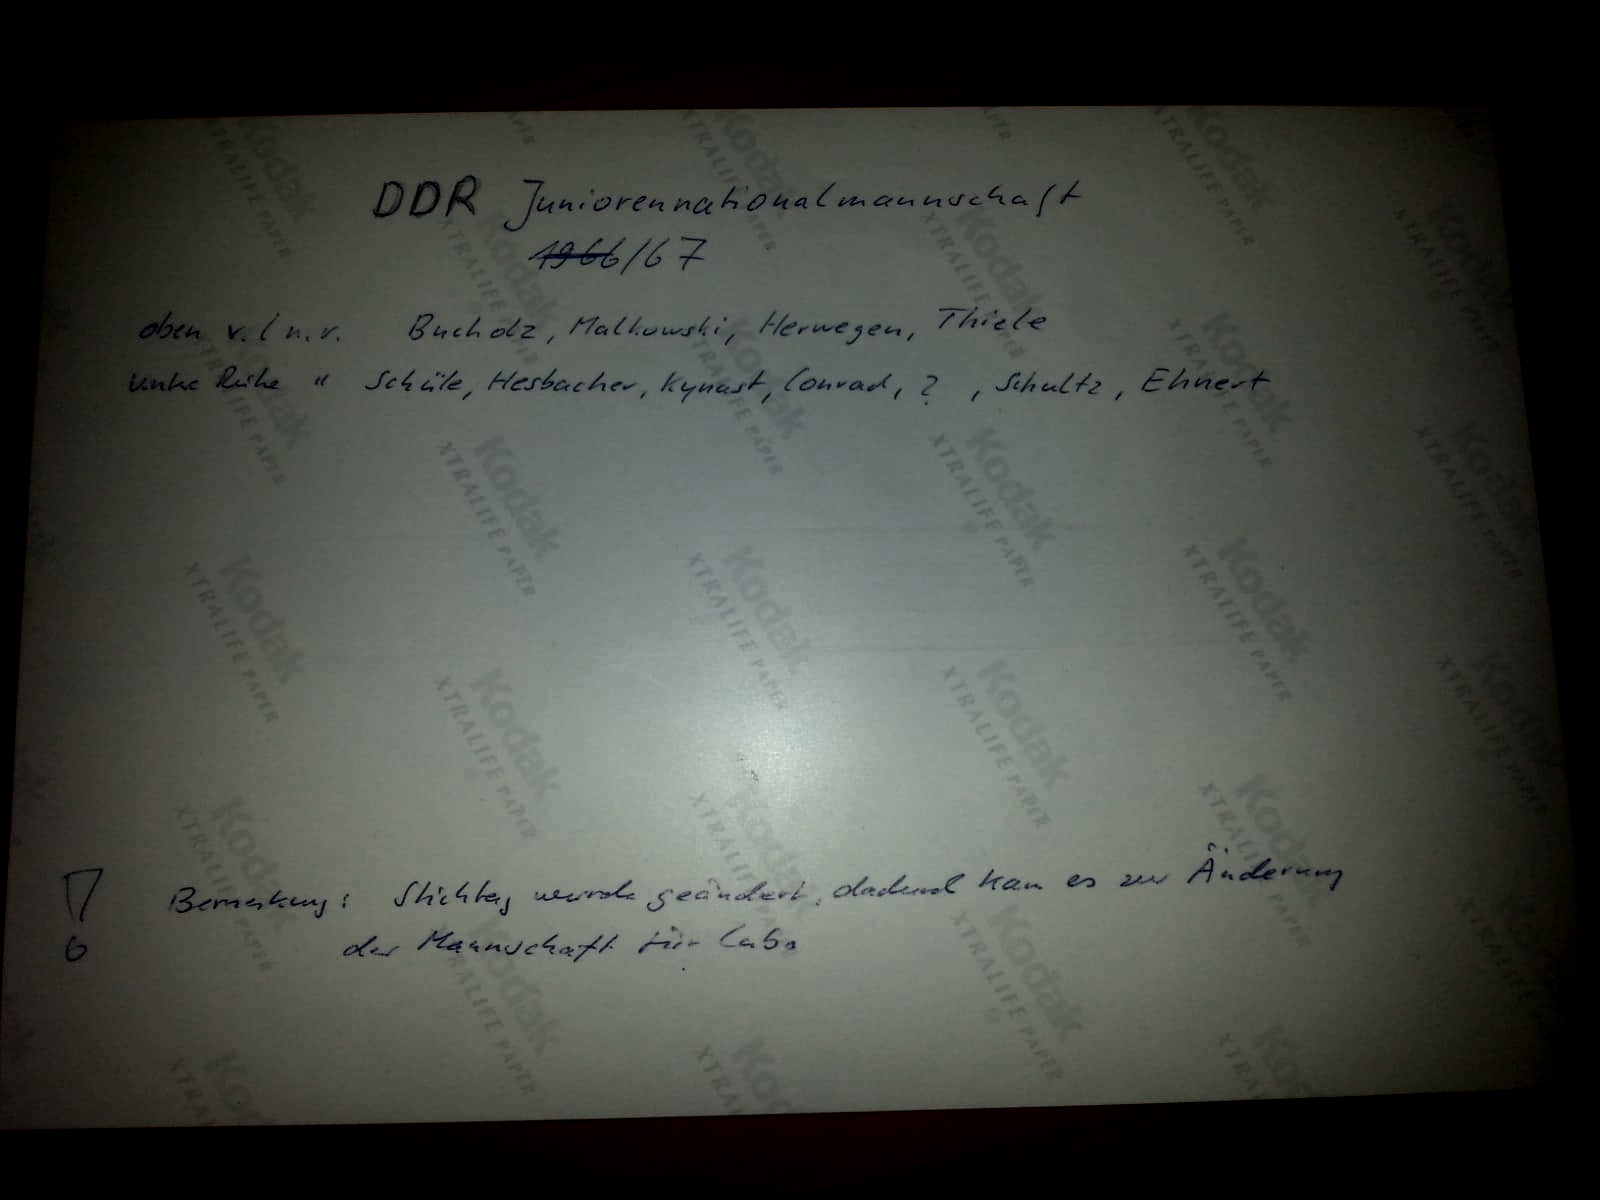 DDR Juniorennationalmannschaft
1966/67
oben v. l n. r. Bucholz, Malkowski, Herwegen, Thiele
untere Reihe " Schüle, Hesbacher, Kynast, Conrad, ? , Schultz, Ehnert
! Bemerkung: Stichtag wurde geändert, dadurch kam es zur Änderung
der Mannschaft für Cuba
Kodak
XTRALIFE PAPER